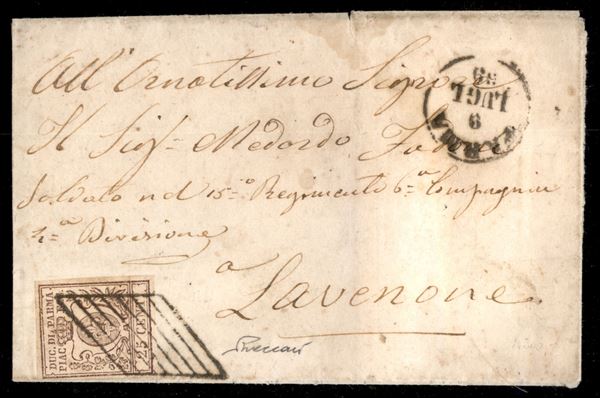 All' Ornatissimo Signore
Il Sigr Medardo
Soldato nel 15=o Regimento 6=a Compagnia
4=a Divisione
a
Lavenone
PARMA
9
LUGL
59
DUC. DI PARMA
PIAC
25 CENT